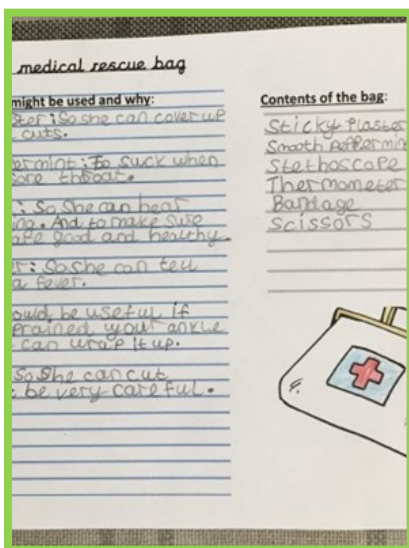 medical rescue bag
might be used and why:
ster: So she can cover up
cuts.
ermint: To suck when
sore throat.
: So She can hear
ing. And to make sure
are good and healthy.
er: So she can tell
a fever.
ould be useful if
prained your ankle
can wrap it up.
So She can cut
be very careful.
Contents of the bag:
Sticky Plaster
Smooth Peppermin
Stethoscope
Thermometer
Bandage
Scissors